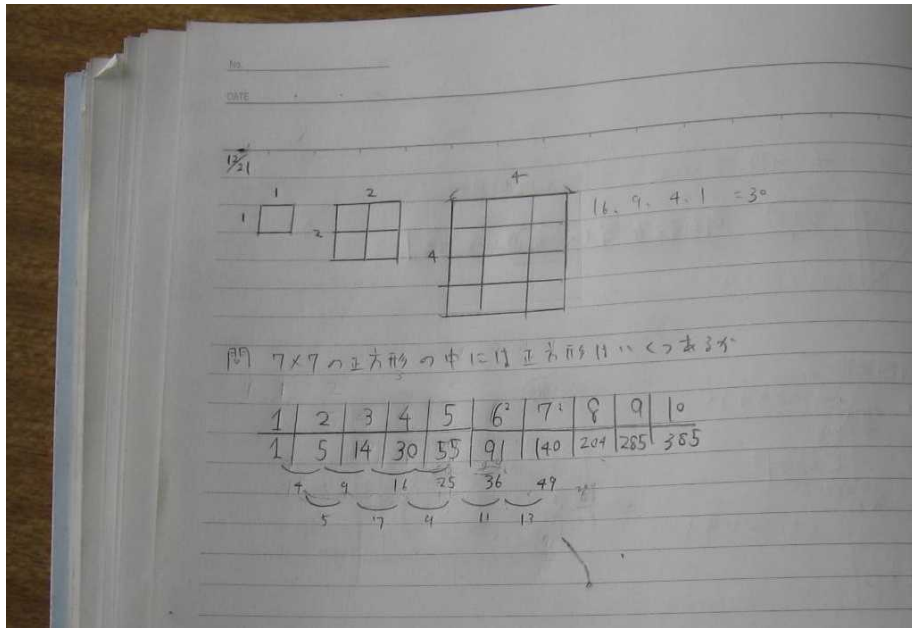 No.
DATE
12/21
1
1
2
2
4
4
16、9、4、1 =30
問 7×7の正方形の中には正方形はいくつあるか
1 2 3 4 5 6² 7² 8 9 10
1 5 14 30 55 91 140 204 285 385
4 9 16 25 36 49
5 7 9 11 13